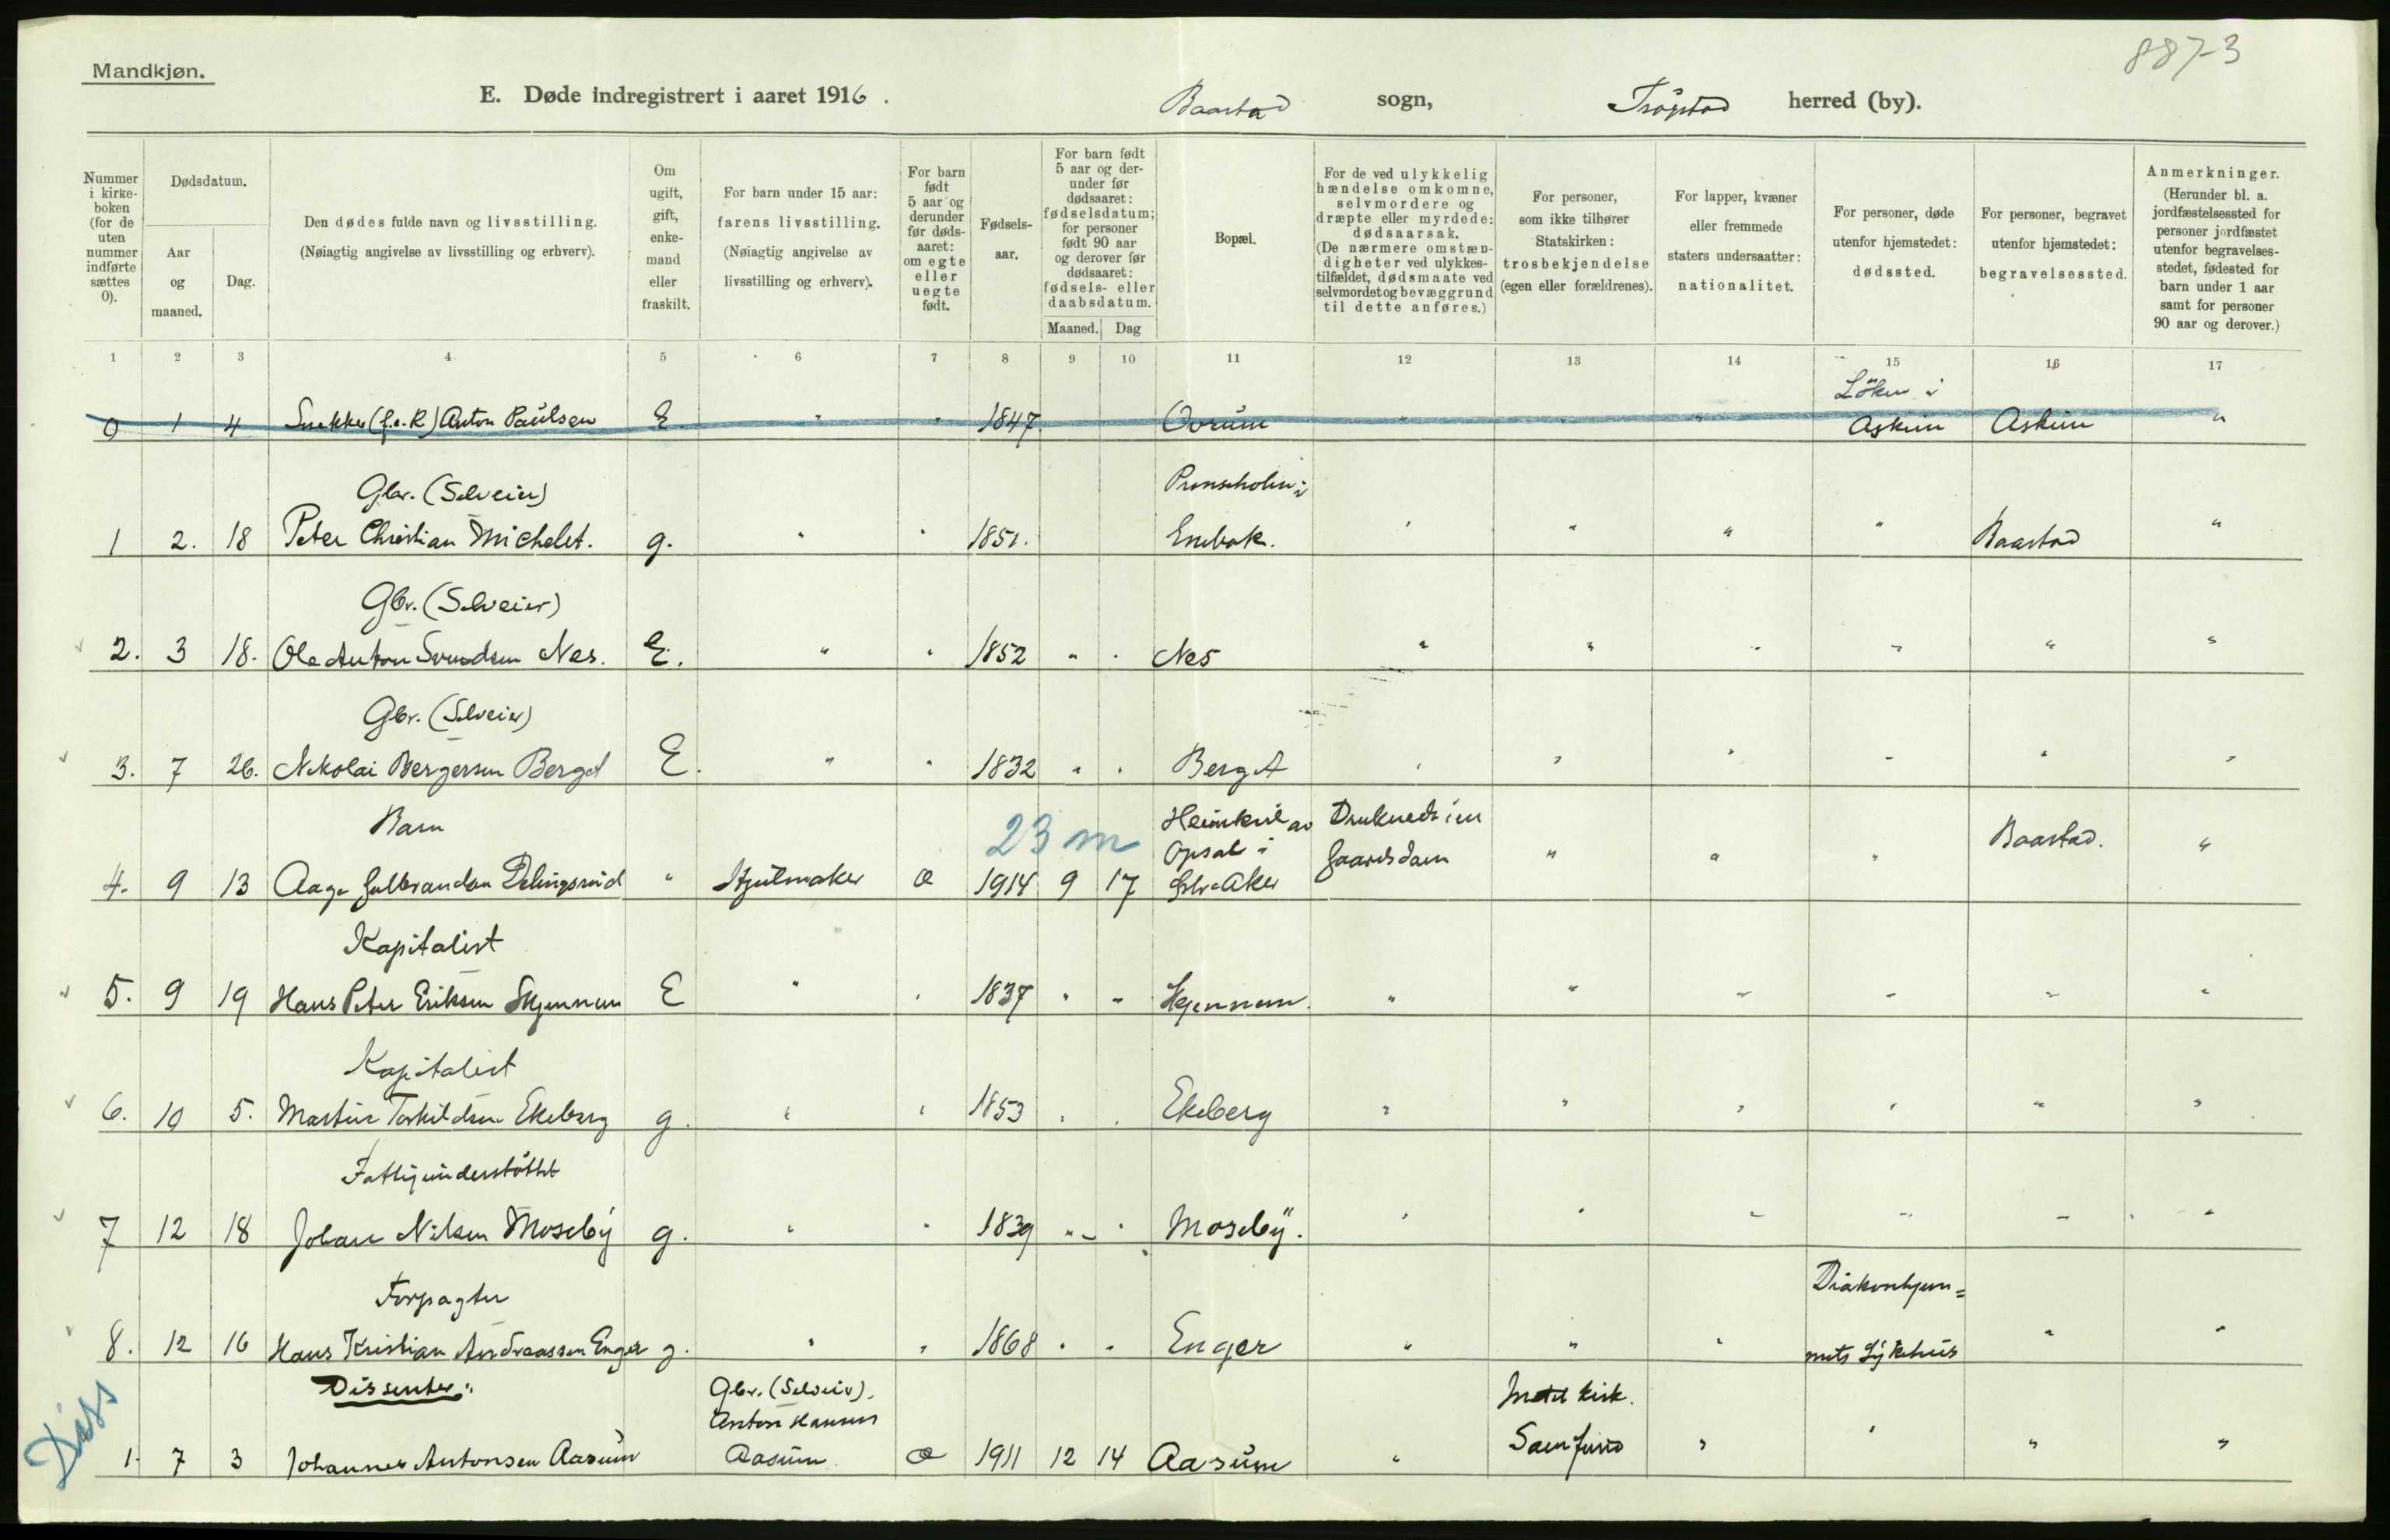 8873
Mandkjøn.
E. Døde indregistrert i aaret 1916. Baastad sogn, Trøgstad herred (by).
Nummer i kirkeboken (for de uten nummer indførte sættes 0).
Dødsdatum.
Aar og maaned.
Dag.
Den dødes fulde navn og livsstilling.
(Nøiagtig angivelse av livsstilling og erhverv).
Om ugift, gift, enkemand eller fraskilt.
For barn under 15 aar: farens livsstilling.
(Nøiagtig angivelse av livsstilling og erhverv).
For barn født 5 aar og derunder før dødsaaret: om egte eller uegte født.
Fødselsaar.
For barn født 5 aar og derunder før dødsaaret: fødselsdatum; for personer født 90 aar og derover før dødsaaret: fødsels- eller daabsdatum.
Maaned. Dag
Bopæl.
For de ved ulykkelig hændelse omkomne, selvmordere og dræpte eller myrdede: dødsaarsak.
(De nærmere omstændigheter ved ulykkestilfældet, dødsmaate ved selvmordet og bevæggrund til dette anføres.)
For personer, som ikke tilhører Statskirken: trosbekjendelse (egen eller forældrenes).
For lapper, kvæner eller fremmede staters undersaatter: nationalitet.
For personer, døde utenfor hjemstedet: dødssted.
For personer, begravet utenfor hjemstedet: begravelsessted.
Anmerkninger.
(Herunder bl. a. jordfæstelsessted for personer jordfæstet utenfor begravelsesstedet, fødested for barn under 1 aar samt for personer 90 aar og derover.)
1 2 3 4 5 6 7 8 9 10 11 12 13 14 15 16 17
Löken i
0 1 4 Snekker (f.o.R) Anton Paulsen E. " " 1847. Ovrum " " " Askim Askim "
Gbr. (Selveier) Prinseholm i
1 2. 18 Peter Christian Michelet. g. " " 1851. Enebak. " " " " Baastad "
Gbr. (Selveier)
2. 3 18. Ole Anton Svendsen Nes. E. " " 1852 " " Nes " " " " " "
Gbr. (Selveier)
3. 7 26. Nikolai Bergersen Berget E. " " 1832 " " Berget " " " " " "
Barn 23 m Heimkeil av Druknede i en
Opsal i Gaardsdam Baastad. "
4. 9 13 Aage Gulbrandsen Delingsrud " Hjulmaker E 1914 9 17 Ø. Aker " " "
Kapitalist
5. 9 19 Hans Peter Eriksen Skjennum E " " 1837 " " Skjennum. " " " " " "
Kapitalist
6. 10 5. Martin Torkildsen Ekeberg g. " " 1853 " " Ekeberg " " " " " "
Fattigunderstöttet
7 12 18 Johan Nilsen Moseby g. " " 1839 " " Moseby. " " " " " "
Forpagter Diakonhjem=
8. 12 16 Hans Kristian Andreassen Enger g. " " 1868 " " Enger " " " mets Sykehus " "
Diss
Dissenter: Gbr. (Selveier). Metd kirk.
Anton Hansen
1. 7 3 Johannes Antonsen Aasum Aasum E 1911 12 14 Aasum " Samfund " " " "